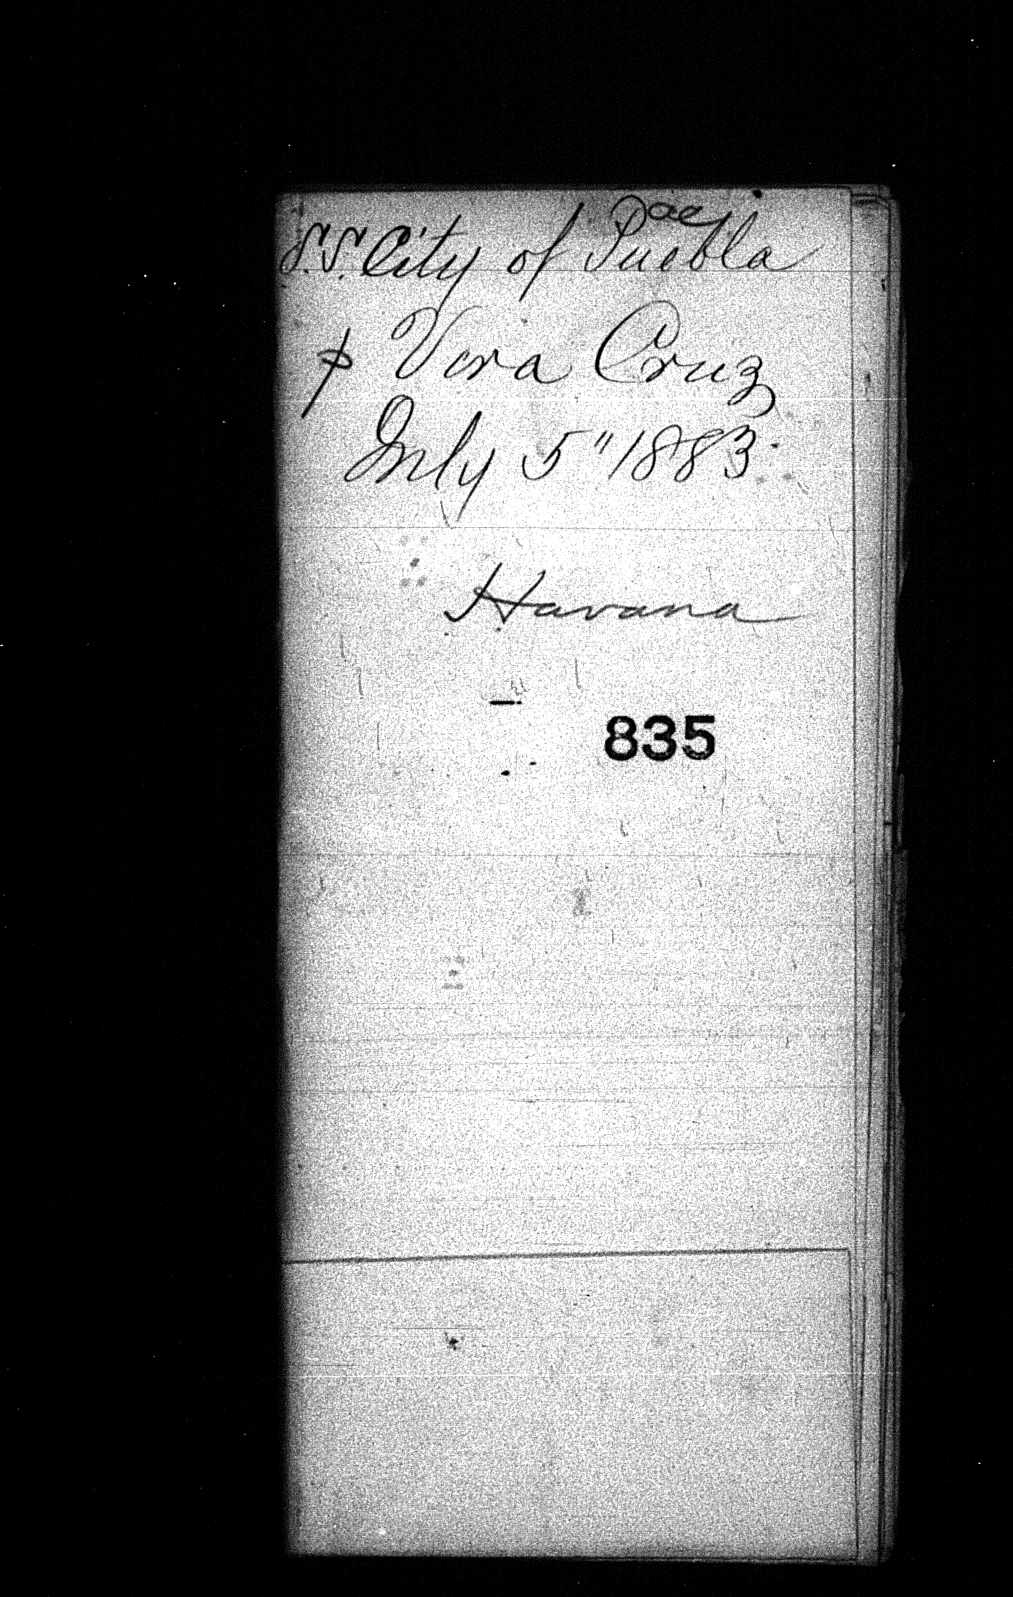 S.S. City of Puebla
p Vera Cruz
July 5" 1883
Havana
835